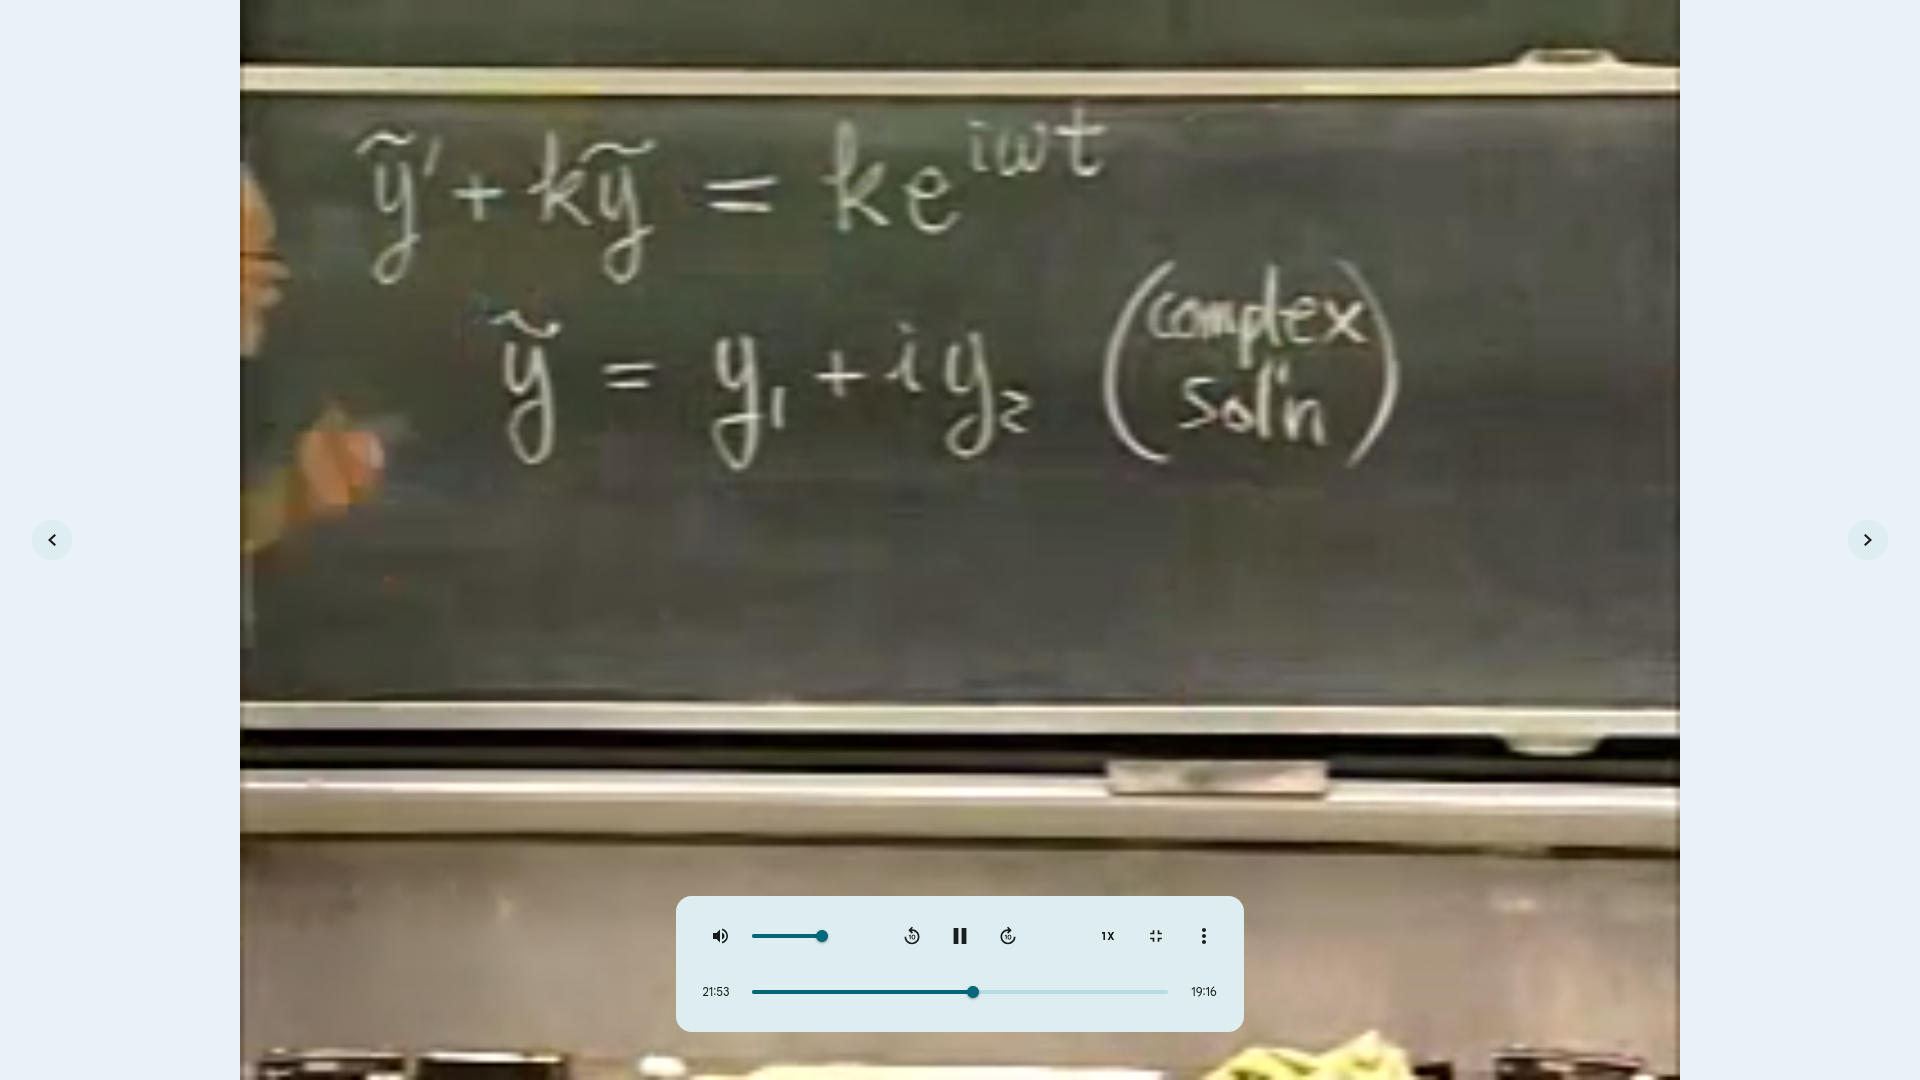 ỹ' + kỹ = ke^{iωt}
ỹ = y₁ + i y₂ (complex sol'n)
10 10 1X
21:53 19:16